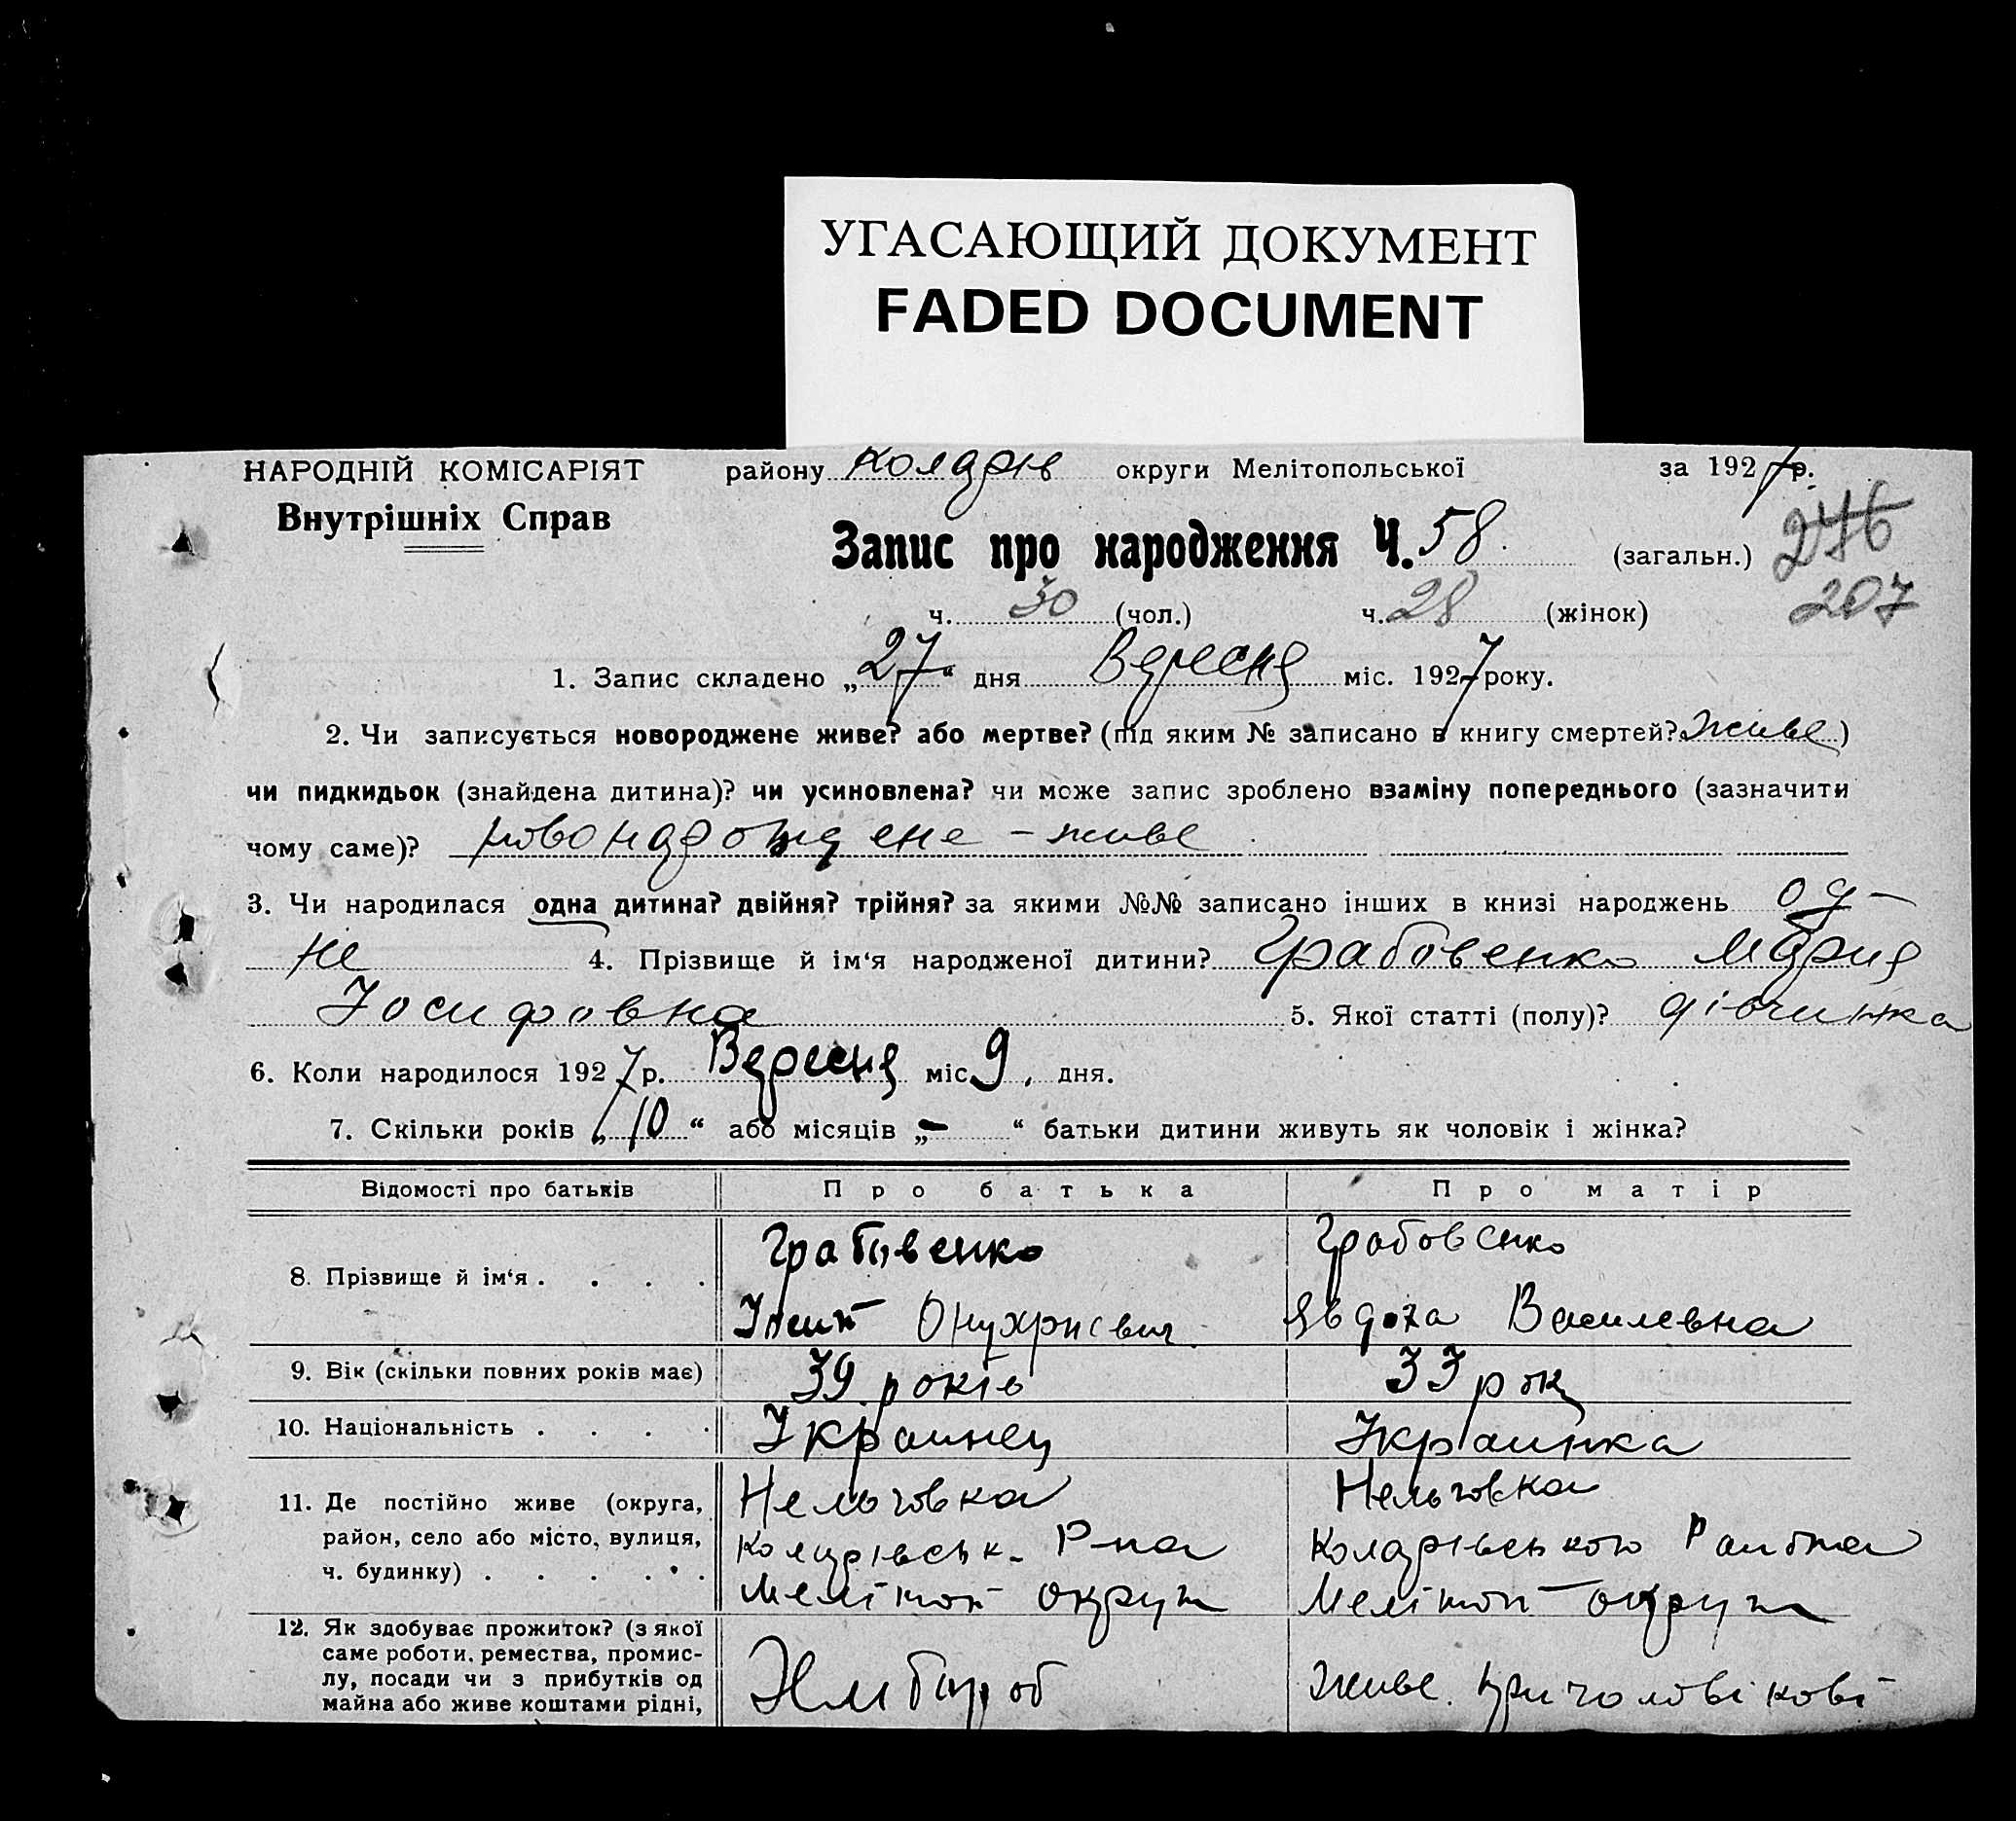 УГАСАЮЩИЙ ДОКУМЕНТ
FADED DOCUMENT
НАРОДНІЙ КОМІСАРІЯТ району Коларів округи Мелітопольської за 1927 р.
Внутрішніх Справ
Запис про народження Ч. 58 (загальн.) 246
ч. 30 (чол.) ч. 28 (жінок) 207
1. Запис складено „27“ дня Вересня міс. 1927 року.
2. Чи записується новороджене живе? або мертве? (під яким № записано в книгу смертей? живе)
чи пидкидьок (знайдена дитина)? чи усиновлена? чи може запис зроблено взаміну попереднього (зазначити
чому саме)? - живе
3. Чи народилася одна дитина? двійня? трійня? за якими №№ записано інших в книзі народжень од-
не 4. Прізвище й ім‘я народженої дитини? Грабовенко Мария
Иосифовна 5. Якої статті (полу)? дівчинка
6. Коли народилося 1927 р. Вересня міс 9, дня.
7. Скільки років „10“ або місяців „-“ батьки дитини живуть як чоловік і жінка?
Відомості про батьків Про батька Про матір
8. Прізвище й ім‘я . . . . Грабовенко Грабовенко
Онухриевич Явдоха Василевна
9. Вік (скільки повних років має) 39 років 33 рок
10. Національність . . . . Украинец Украинка
11. Де постійно живе (округа, Нельговка Нельговка
район, село або місто, вулиця, Коларівськ. Р-на Коларівського Раиона
ч. будинку) . . . . . Мелітоп округи Мелітоп округи
12. Як здобуває прожиток? (з якої
саме роботи, ремества, промис-
лу, посади чи з прибутків од Хлібороб Живе при чоловікові
майна або живе коштами рідні,